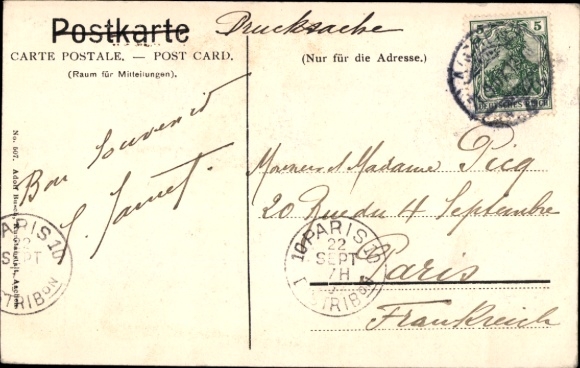 Postkarte
Drucksache
CARTE POSTALE. — POST CARD.
(Raum für Mitteilungen).
(Nur für die Adresse).
5
DEUTSCHES REICH
Bon Souvenir
Monsieur et Madame Picq
20 Rue du 4 Septembre
Paris
Frankreich
PARIS 10
22
SEPT
7H
DISTRIBON
PARIS 10
22
SEPT
DISTRIBON
No. 507. Adolf